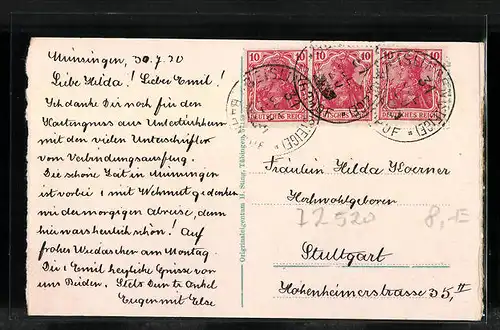 Münsingen, 30.7.20
Liebe Hilda! Lieber Emil!
Ich danke Dir noch für den
Kartengruss aus Untertürkheim
mit den vielen Unterschriften
vom Verbindungsausflug.
Die schöne Zeit in Münsingen
ist vorbei mit Wehmut gedenken
wir der morgigen Abreise, denn
hier wars herrlich schön! Auf
frohes Wiedersehen am Montag
Dir & Emil herzliche Grüsse von
uns Beiden. Stets Dein tr. Onkel
Eugen mit Else
Originaleigentum H. Sting, Tübingen
10 10 10
DEUTSCHES REICH DEUTSCHES REICH DEUTSCHES REICH
Fräulein Hilda Koerner
Hochwohlgeboren
72520 8,-E
Stuttgart
Hohenheimerstrasse 35, II